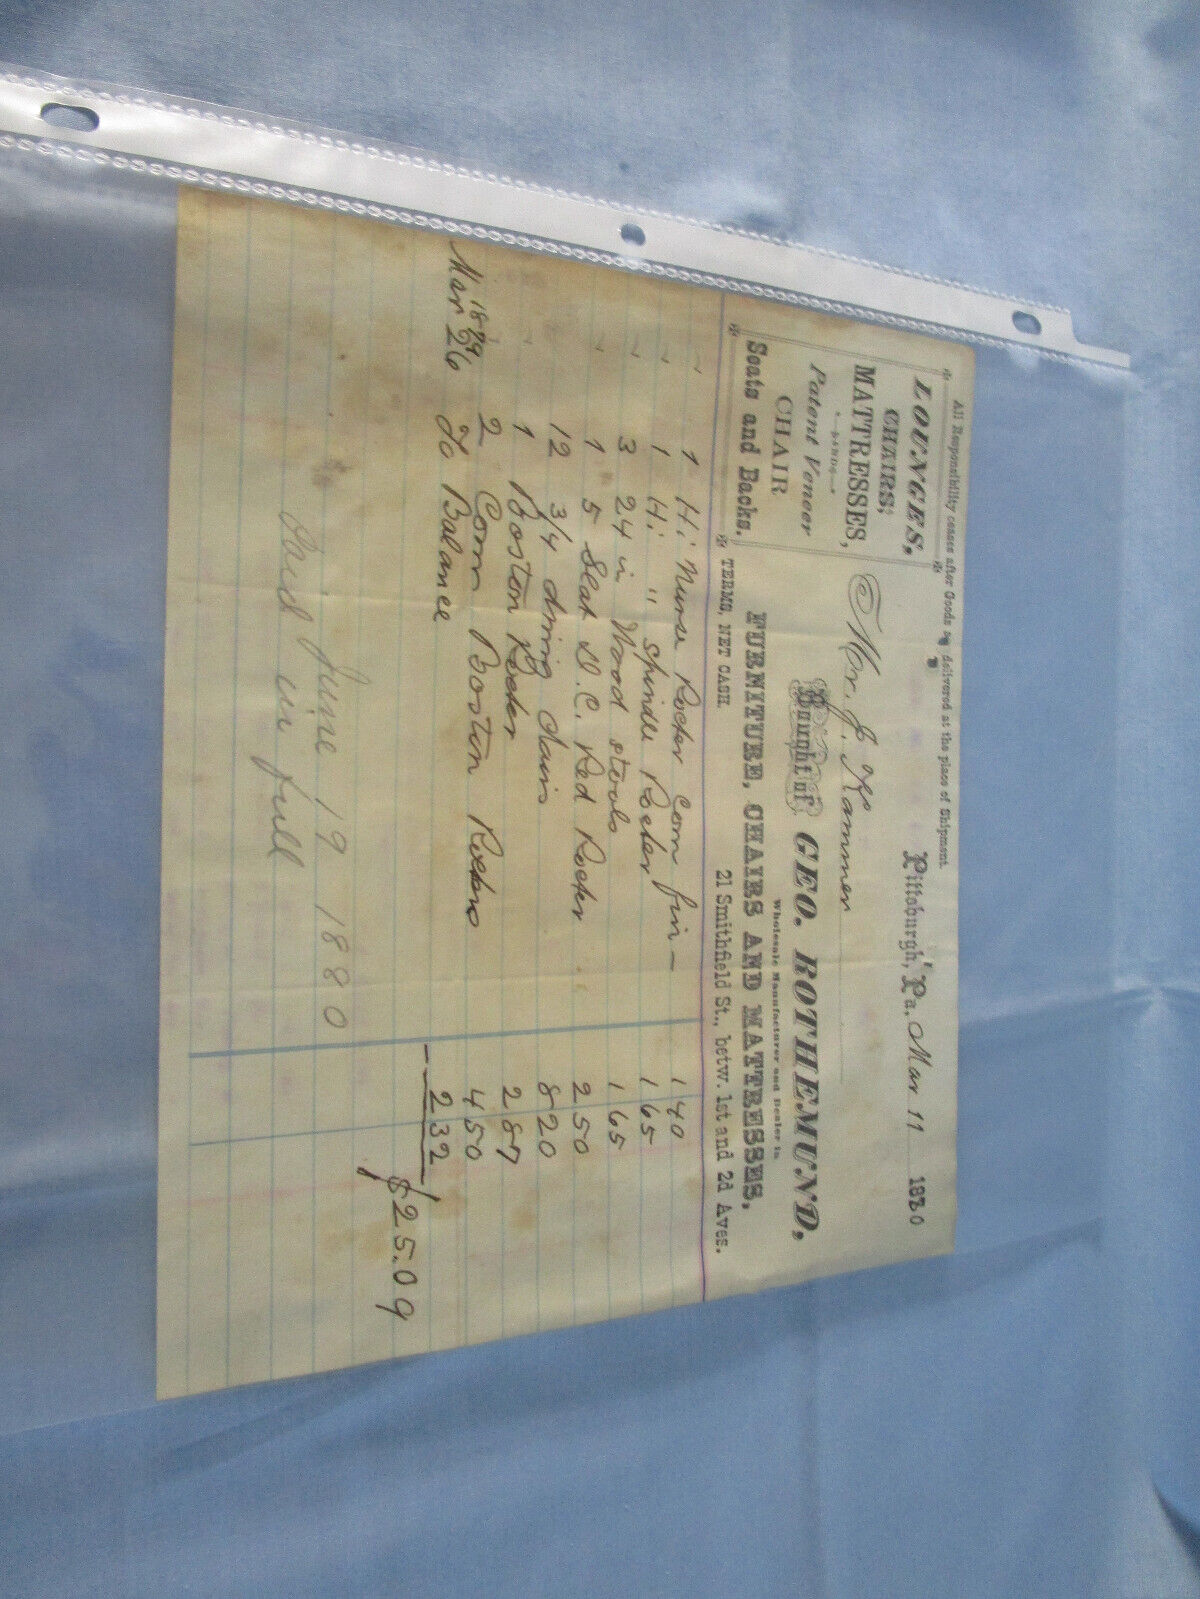 All Responsibility ceases after Goods are delivered at the place of Shipment.
LOUNGES,
CHAIRS,
MATTRESSES,
—AND—
Patent Veneer
CHAIR
Seats and Backs.
Pittsburgh, Pa, Mar 11 1880
Mr. J. Kammer
Bought of GEO. ROTHEMUND,
Wholesale Manufacturer and Dealer in
FURNITURE, CHAIRS AND MATTRESSES,
TERMS, NET CASH. 21 Smithfield St., betw. 1st and 2d Aves.
" 1 Hi Nurse Rocker Com fin — 1 40
" 1 Hi " Spindle Rocker 1 65
" 3 24 in Wood stools 1 65
" 1 5 Seat D.C. Red Rocker 2 50
" 12 3/4 dining chairs 8 20
" 1 Boston Rocker 2 87
" 2 Com Boston Rockers 4 50
1879
Mar 26 To Balance 2 32
$25.09
Paid June 19 1880
in full